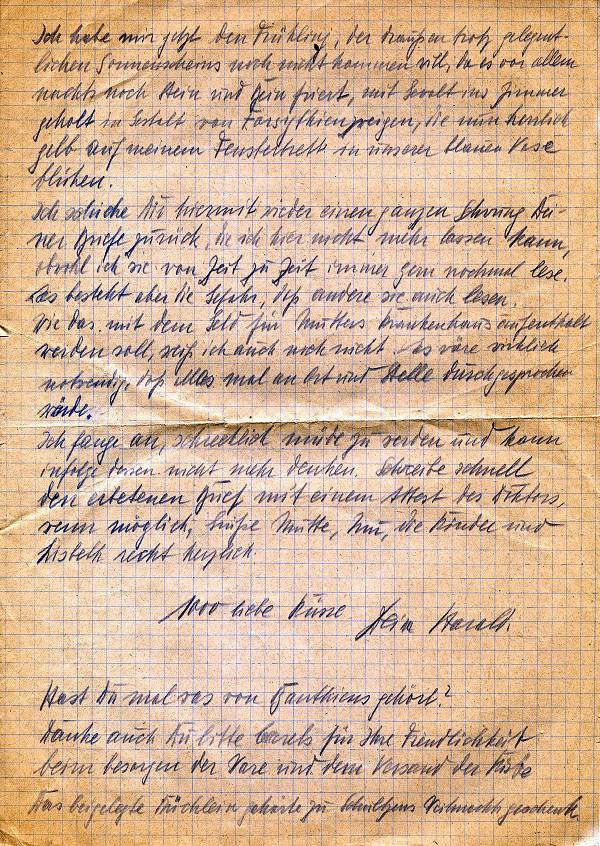 Ich habe mir jetzt den Frühling, der draußen trotz gelegent-
lichen Sonnenscheins noch nicht kommen will, da es vor allem
nachts noch Stein und Bein friert, mit Gewalt ins Zimmer
geholt in Gestalt von Forsythienzweigen, die nun herrlich
gelb auf meinem Fensterbrett in unserer blauen Vase
blühen.
Ich schicke Dir hiermit wieder einen ganzen Schwung Dei-
ner Briefe zurück, die ich hier nicht mehr lassen kann,
obwohl ich sie von Zeit zu Zeit immer gern nochmal lese.
Es besteht aber die Gefahr, daß andere sie auch lesen.
Wie das mit dem Geld für Mutters Krankenhausaufenthalt
werden soll, weiß ich auch noch nicht. Es wäre wirklich
notwendig, daß alles mal an Ort und Stelle durchgesprochen
würde.
Ich fange an, schrecklich müde zu werden und kann
infolge dessen nicht mehr denken. Schreibe schnell
den erbetenen Brief mit einem Attest des Doktors,
wenn möglich, Grüße Mutter, die Kinder und
Lisbeth recht herzlich.
1000 liebe Küsse Dein Harald.
Hast Du mal was von gehört?
Danke auch Du bitte für Ihre Freundlichkeit
beim besorgen der Ware und dem Versand der Kiste
Das beigelegte Büchlein gehörte zu Weihnachtsgeschenk.